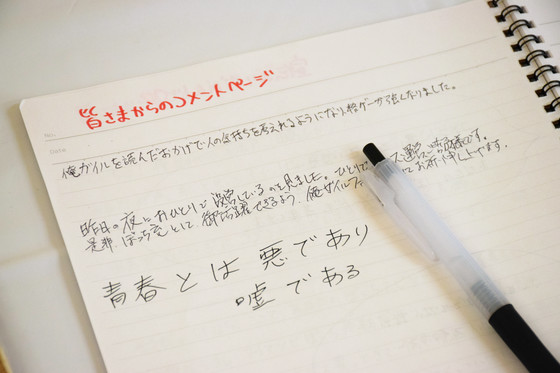 皆さまからのコメントページ
No.
Date
俺ガイルを読んだおかげで人の気持ちを考えれるようになり、格ゲーが強くなりました。
昨日の夜、おひとりで設営しているのを見ました。ひとりで
是非、ぼっち充として、御活躍できるよう、俺ガイルファ お祈り申し上げます。
青春とは悪であり
嘘である